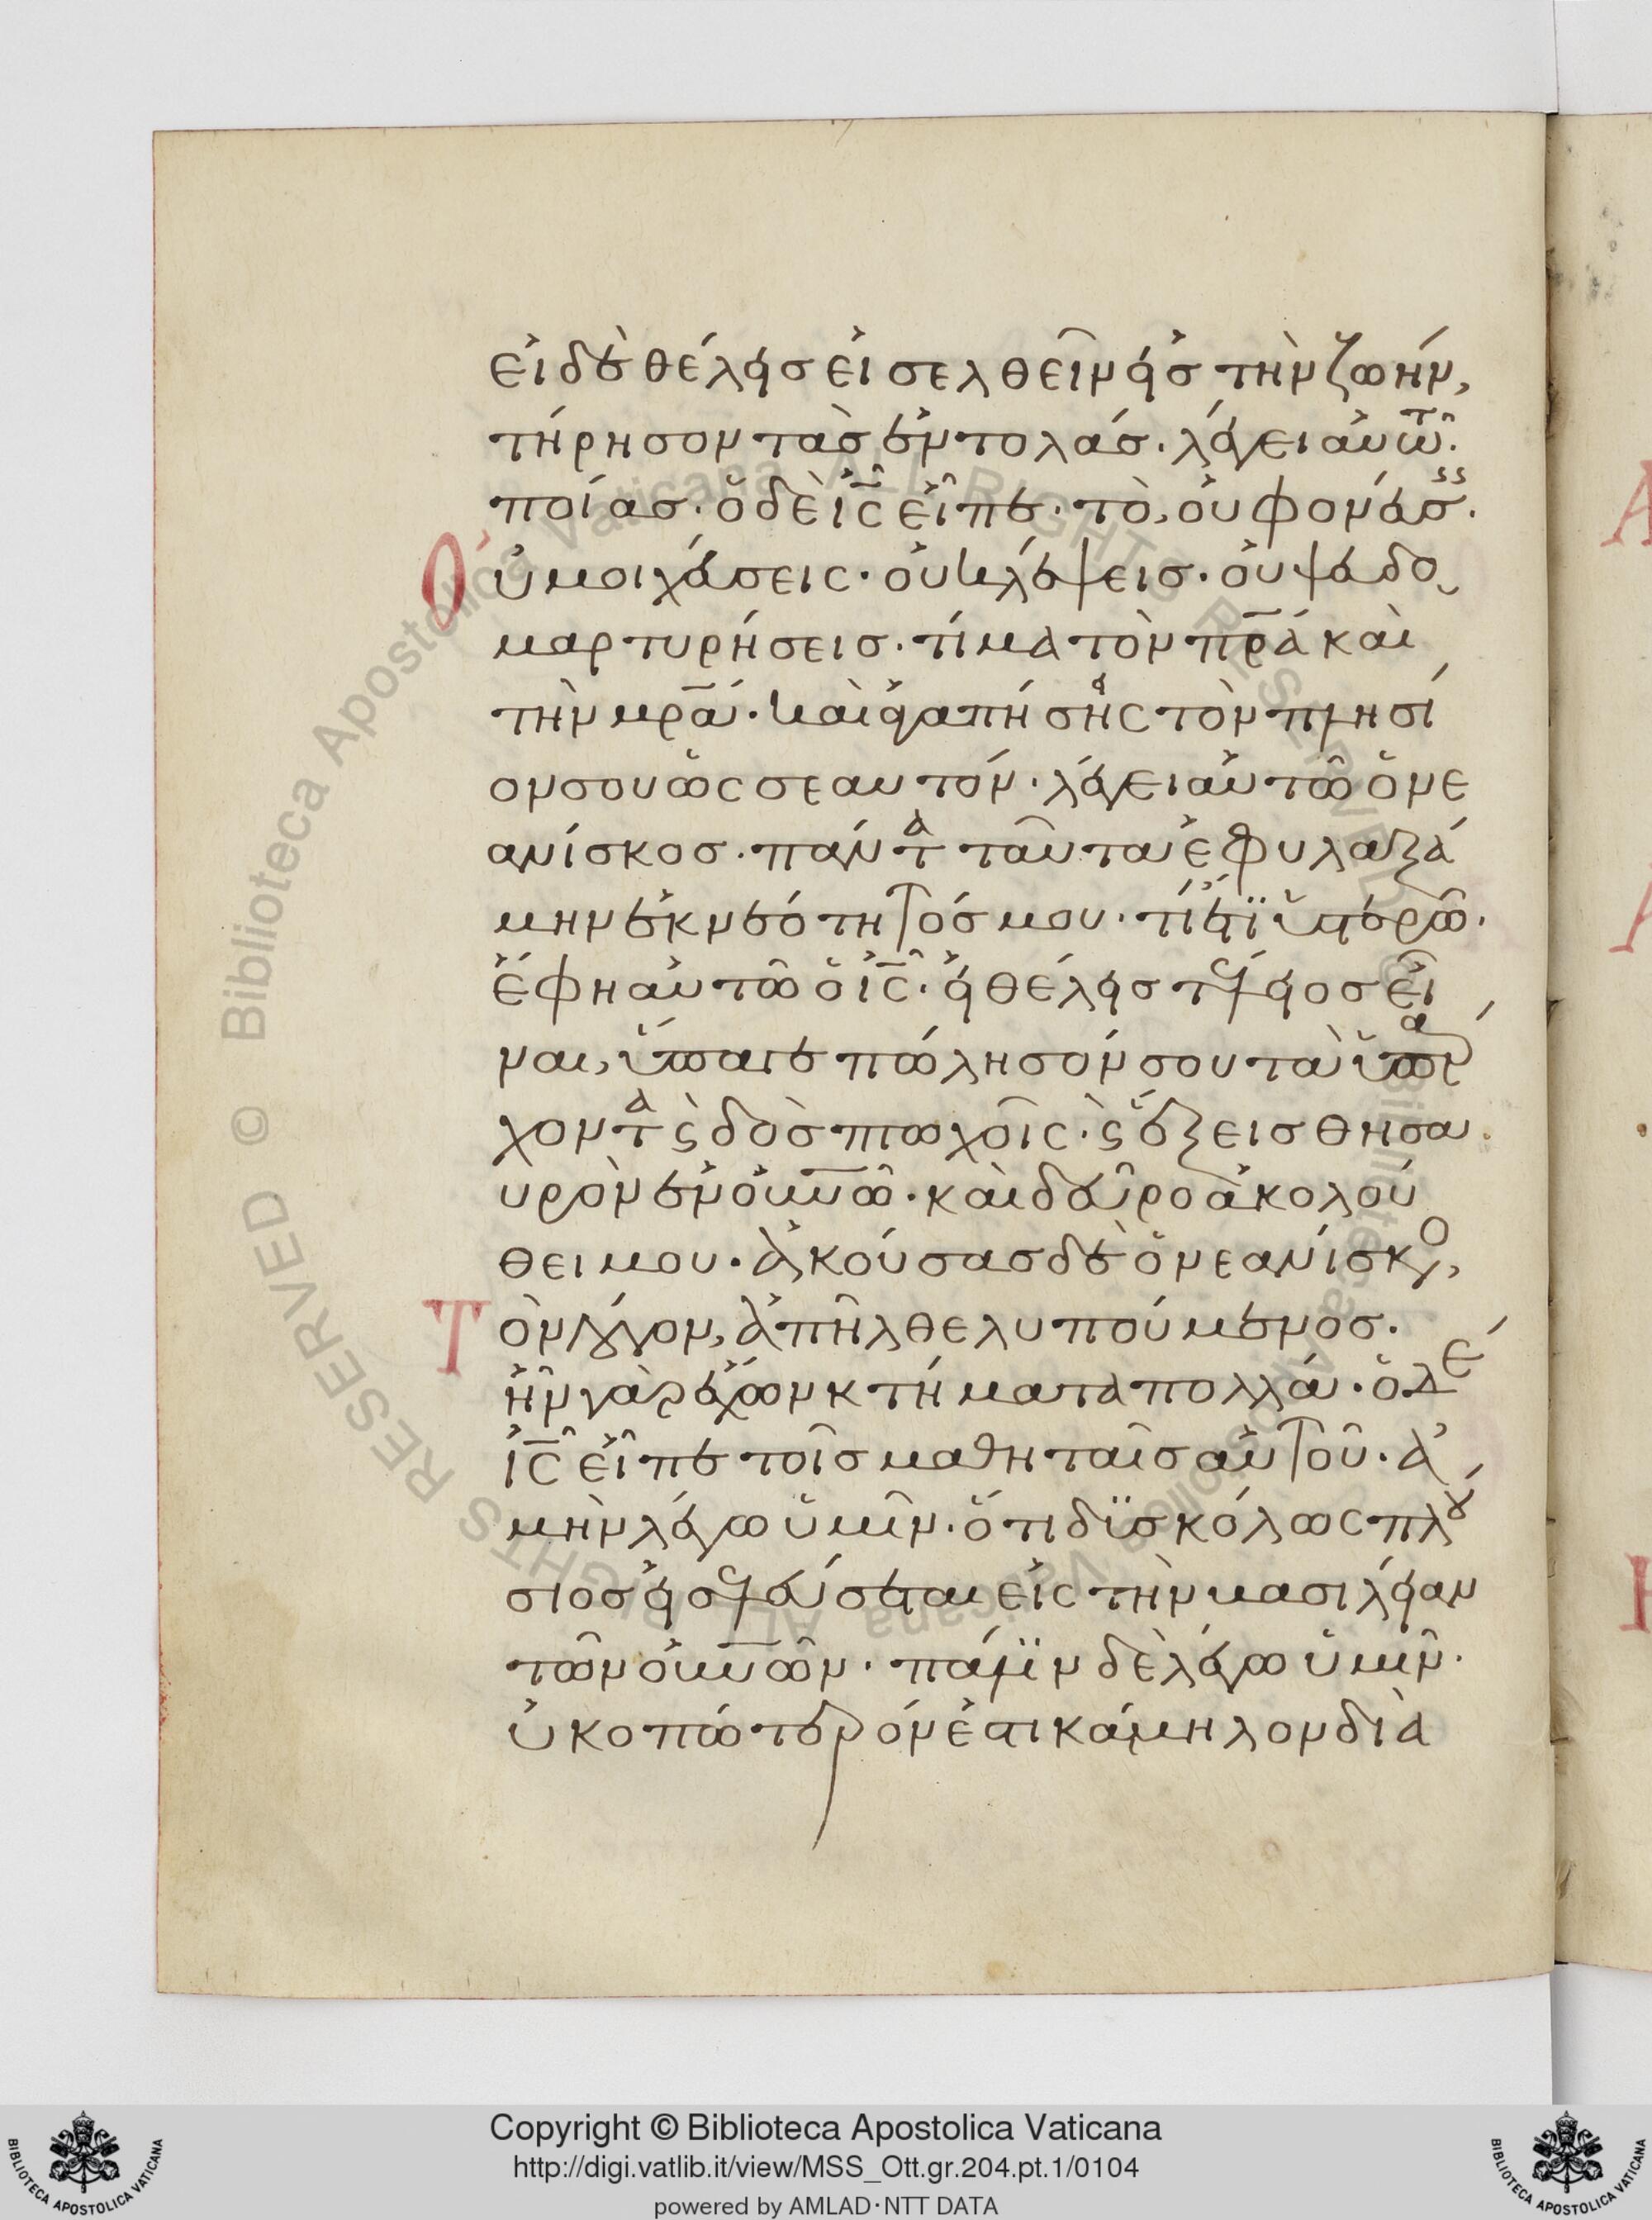 εἰ δὲ θέλεις εἰσελθεῖν εἰς τὴν ζωήν,
τήρησον τὰς ἐντολάς· λέγει αὐτῶ·
ποίας· ὁ δὲ ἰ̅ς̅ εἶπε· τὸ, οὐ φονεύσεις·
Οὐ μοιχεύσεις· οὐ κλέψεις· οὐ ψευδο
μαρτυρήσεις· τίμα τὸν π̅ρ̅α̅ καὶ
τὴν μ̅ρ̅α̅· καὶ ἀγαπήσεις τὸν πλησί
ον σου ὡς σεαυτόν· λέγει αὐτῶ ὁ νε
ανίσκος· πάντα ταῦτα ἐφυλαξά
μην ἐκ νεότητός μου· τί ἔτι ὑστερῶ·
ἔφη αὐτῶ ὁ ἰ̅ς̅· εἰ θέλεις τέλειος εἶ
ναι, ὕπαγε πώλησόν σου τὰ ὑπάρ
χοντα ϗ δὸς πτωχοῖς· ϗ ἕξεις θησα
υρὸν ἐν ο̅υ̅ν̅ω̅· καὶ δεῦρο ἀκολού
θει μου· ἀκούσας δὲ ὁ νεανίσκος,
Τὸν λόγον, ἀπῆλθε λυπούμενος·
ἦν γὰρ ἔχων κτήματα πολλά· ὁ δὲ
ἰ̅ς̅ εἶπε τοῖς μαθηταῖς αὐτοῦ· ἀ
μὴν λέγω ὑμῖν· ὅτι δϊσκόλως πλού
σιος εἰσελεύσεται εἰς τὴν βασιλείαν
τῶν ο̅υ̅ν̅ω̅ν̅· πάλϊν δὲ λέγω ὑμῖν·
ὐκοπώτερόν ἐστι κάμηλον διὰ
Copyright © Biblioteca Apostolica Vaticana
http://digi.vatlib.it/view/MSS_Ott.gr.204.pt.1/0104
powered by AMLAD·NTT DATA